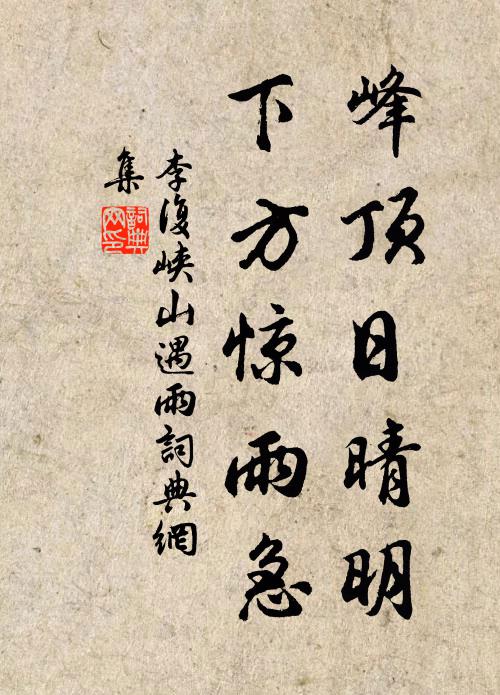 峰顶日晴明
下方惊雨急
李復峡山遇雨詞典網
集
詞典網印